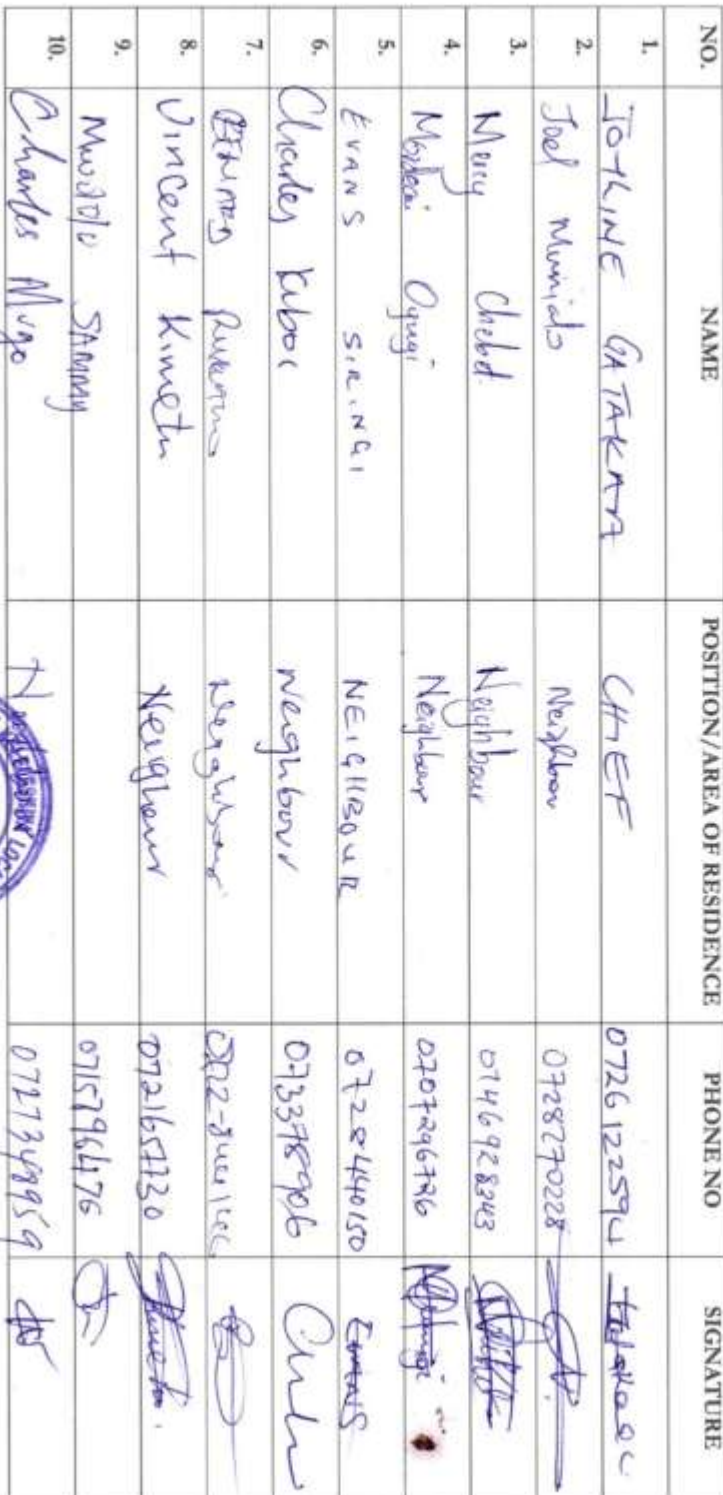 NO. NAME POSITION/AREA OF RESIDENCE PHONE NO SIGNATURE
1. JOTHINE GATAKAA CHIEF 0726122594
2. Joel Neighbour 0728270228
3. Mercy Chebet Neighbour 0746928343
4. Mordecai Oyugi Neighbour 0707296726
5. EVANS SIRINGI NEIGHBOUR 0728440150 EVANS
6. Charles Kiboi Neighbour 0733785906
7. Neighbour
8. Vincent Kimetu Neighour 0721651730
9. SAMMY 0715796476
10. Charles Mugo 0727348959